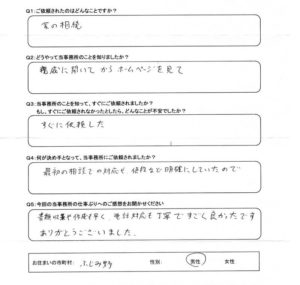 Q1：ご依頼されたのはどんなことですか？
家の相続
Q2：どうやって当事務所のことを知りましたか？
親戚に聞いてからホームページを見て
Q3：当事務所のことを知って、すぐにご依頼されましたか？
もし、すぐにご依頼されなかったとしたら、どんなことが不安でしたか？
すぐに依頼した
Q4：何が決め手となって、当事務所にご依頼されましたか？
最初の相談での対応や値段など明確にしていたので
Q5：今回の当事務所の仕事ぶりへのご感想をお聞かせください
書類収集や作成も早く 電話対応も丁寧ですごく良かったです
ありがとうございました。
お住まいの市町村： ふじみ野 性別： 男性 女性